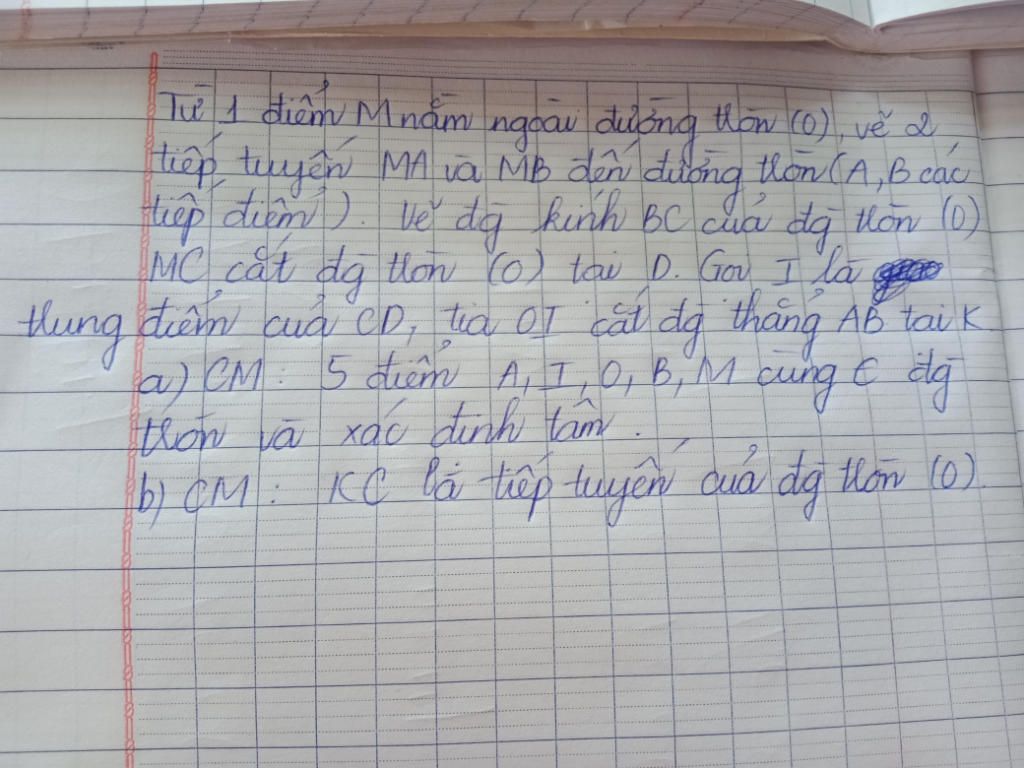 Từ 1 điểm M nằm ngoài đường tròn (O), vẽ 2
tiếp tuyến MA và MB đến đường tròn (A, B các
tiếp điểm). Vẽ đg kính BC của đg tròn (O)
MC cắt đg tròn (O) tại D. Gọi I là
trung điểm của CD, tia OI cắt đg thẳng AB tại K
a) CM: 5 điểm A, I, O, B, M cùng ∈ đg
tròn và xác định tâm.
b) CM: KC là tiếp tuyến của đg tròn (O).